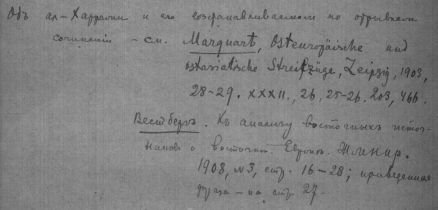 Объ ал-Харрани и его восстанавливаемом по отрывкам
сочинении - см. Marquart, Osteuropäische und
ostasiatische Streifzüge, Leipzig, 1903,
28-29. XXXII, 26, 25-26, 203, 466.
Вестбергъ. Къ анализу восточныхъ источ-
никовъ о восточной Европѣ. Ж.м.н.пр.
1908, №3, стр. 16-28; приведенная
фраза - на стр. 27.